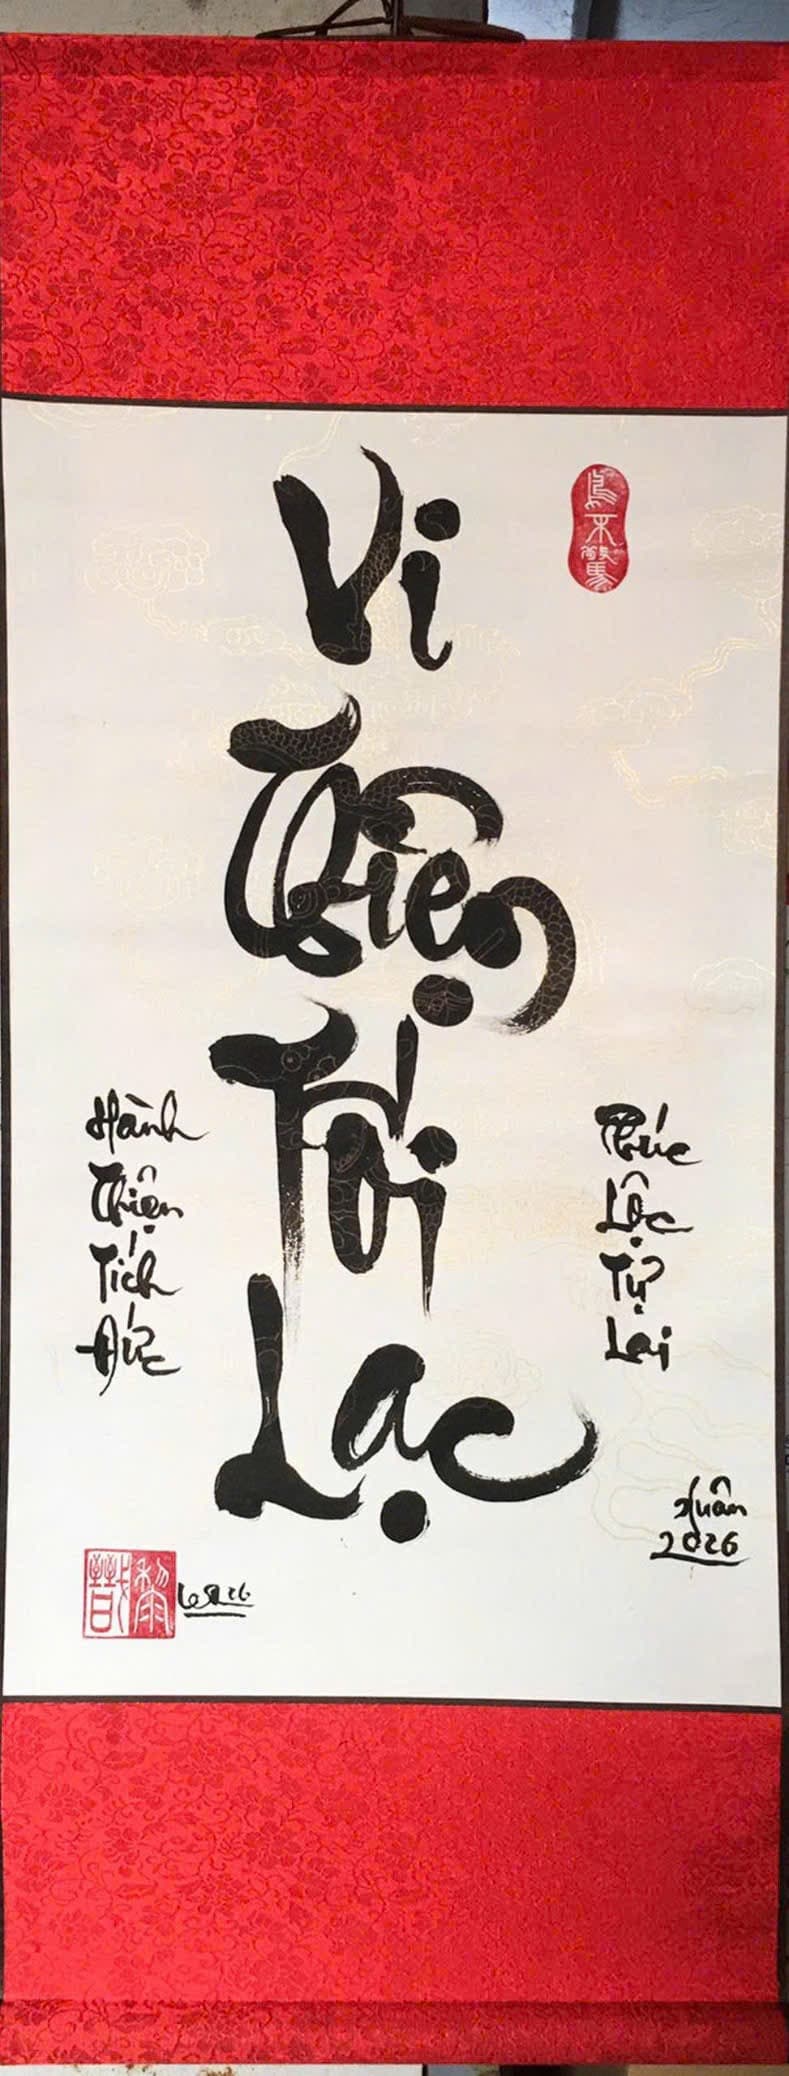 Vi
Thiện
Tối
Lạc
Hành
Thiện
Tích
Đức
Phúc
Lộc
Tự
Lai
Xuân
2026